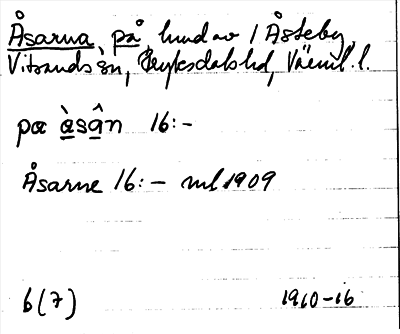 Åsarna, på hmd av 1 Åsteby,
Vitsands sn, Fryksdals hd, Värml. l.
på àsân 16:-
Åsarne 16:- ml 1909
6(7) 1910-16